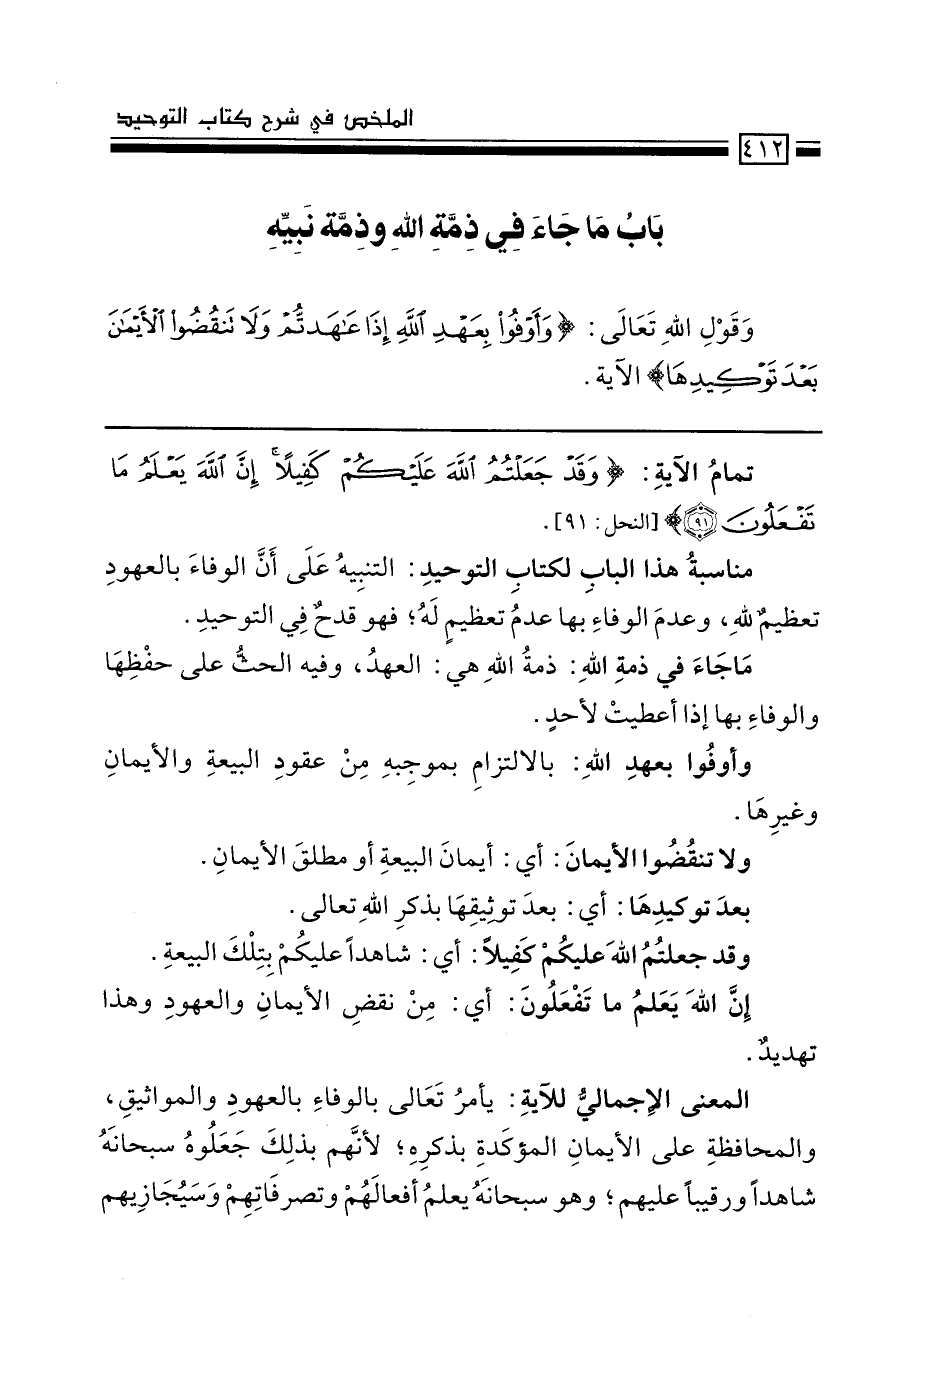 الملخص في شرح كتاب التوحيد
٤١٢
بَابُ مَا جَاءَ فِي ذِمَّةِ اللهِ وذِمَّة نَبِيِّهِ
وَقَوْلِ اللهِ تَعَالَى: ﴿وَأَوْفُوا۟ بِعَهْدِ ٱللَّهِ إِذَا عَٰهَدتُّمْ وَلَا تَنقُضُوا۟ ٱلْأَيْمَٰنَ
بَعْدَ تَوْكِيدِهَا﴾ الآية.
تمامُ الآيةِ: ﴿وَقَدْ جَعَلْتُمُ ٱللَّهَ عَلَيْكُمْ كَفِيلًا ۚ إِنَّ ٱللَّهَ يَعْلَمُ مَا
تَفْعَلُونَ ٩١﴾ [النحل: ٩١].
مناسبةُ هذا البابِ لكتابِ التوحيدِ: التنبيهُ عَلَى أَنَّ الوفاءَ بالعهودِ
تعظيمٌ للهِ، وعدمَ الوفاءِ بها عدمُ تعظيمٍ لَهُ؛ فهو قدحٌ فِي التوحيدِ.
مَا جَاءَ في ذمةِ اللهِ: ذمةُ اللهِ هي: العهدُ، وفيه الحثُّ على حفْظِهَا
والوفاءِ بها إذا أعطيتْ لأحدٍ.
وأوفُوا بعهدِ اللهِ: بالالتزامِ بموجبِهِ مِنْ عقودِ البيعةِ والأيمانِ
وغيرِهَا.
ولا تنقُضُوا الأيمانَ: أي: أيمانَ البيعةِ أو مطلقَ الأيمانِ.
بعدَ توكيدِهَا: أي: بعدَ توثيقِهَا بذكرِ اللهِ تعالى.
وقد جعلتُمُ اللهَ عليكُمْ كَفِيلاً: أي: شاهداً عليكُمْ بِتِلْكَ البيعةِ.
إِنَّ اللهَ يَعلمُ ما تَفْعَلُونَ: أي: مِنْ نقضِ الأيمانِ والعهودِ وهذا
تهديدٌ.
المعنى الإجماليُّ للآيةِ: يأمرُ تَعَالى بالوفاءِ بالعهودِ والمواثيقِ،
والمحافظةِ على الأيمانِ المؤكَدةِ بذكرِهِ؛ لأنَّهم بذلِكَ جَعَلُوهُ سبحانَهُ
شاهداً ورقيباً عليهم؛ وهو سبحانَهُ يعلمُ أفعالَهُمْ وتصرفَاتِهِمْ وَسَيُجَازِيهم